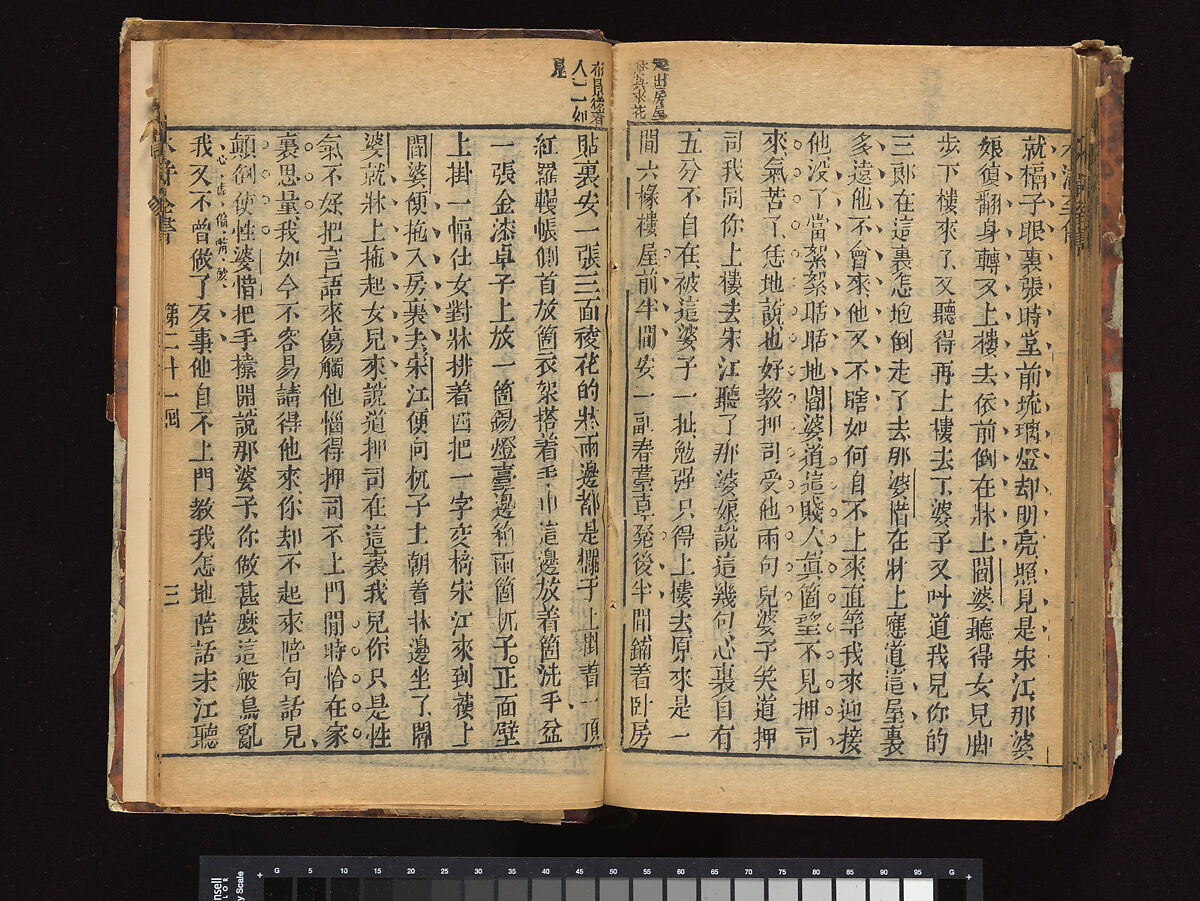 就槅子眼裏張時堂前琉璃燈却明亮照見是宋江那婆
娘復翻身轉又上樓去依前倒在牀上閻婆聽得女兒脚
步下樓來了又聽得再上樓去了婆子又叫道我兒你的
三郎在這裏怎地倒走了去那婆惜在牀上應道這屋裏
多遠他不會來他又不瞎如何自不上來直等我來迎接
他没了當絮絮聒聒地閻婆道這賤人真箇望不見押司
來氣苦了恁地說也好教押司受他兩句兒婆子笑道押
司我同你上樓去宋江聽了那婆娘說這幾句心裏自有
五分不自在被這婆子一扯勉强只得上樓去原來是一
間六椽樓屋前半間安一副春臺卓凳後半間鋪着卧房
貼裏安一張三面稜花的牀兩邊都是欄干上掛着一頂
紅羅幔帳側首放箇衣架搭着手巾這邊放着箇洗手盆
一張金漆卓子上放一箇錫燈臺邊廂兩箇杌子正面壁
上掛一幅仕女對牀排着四把一字交椅宋江來到樓上
閻婆便拖入房裏去宋江便向杌子上朝着牀邊坐了閻
婆就牀上拖起女兒來說道押司在這裏我兒你只是性
氣不好把言語來傷觸他惱得押司不上門閒時恰在家
裏思量我如今不容易請得他來你却不起來陪句話兒
顛倒使性婆惜把手擡開說那婆子你做甚麽這般鳥亂
我又不曾做了歹事他自不上門教我怎地陪話宋江聽
第二十一囘
三